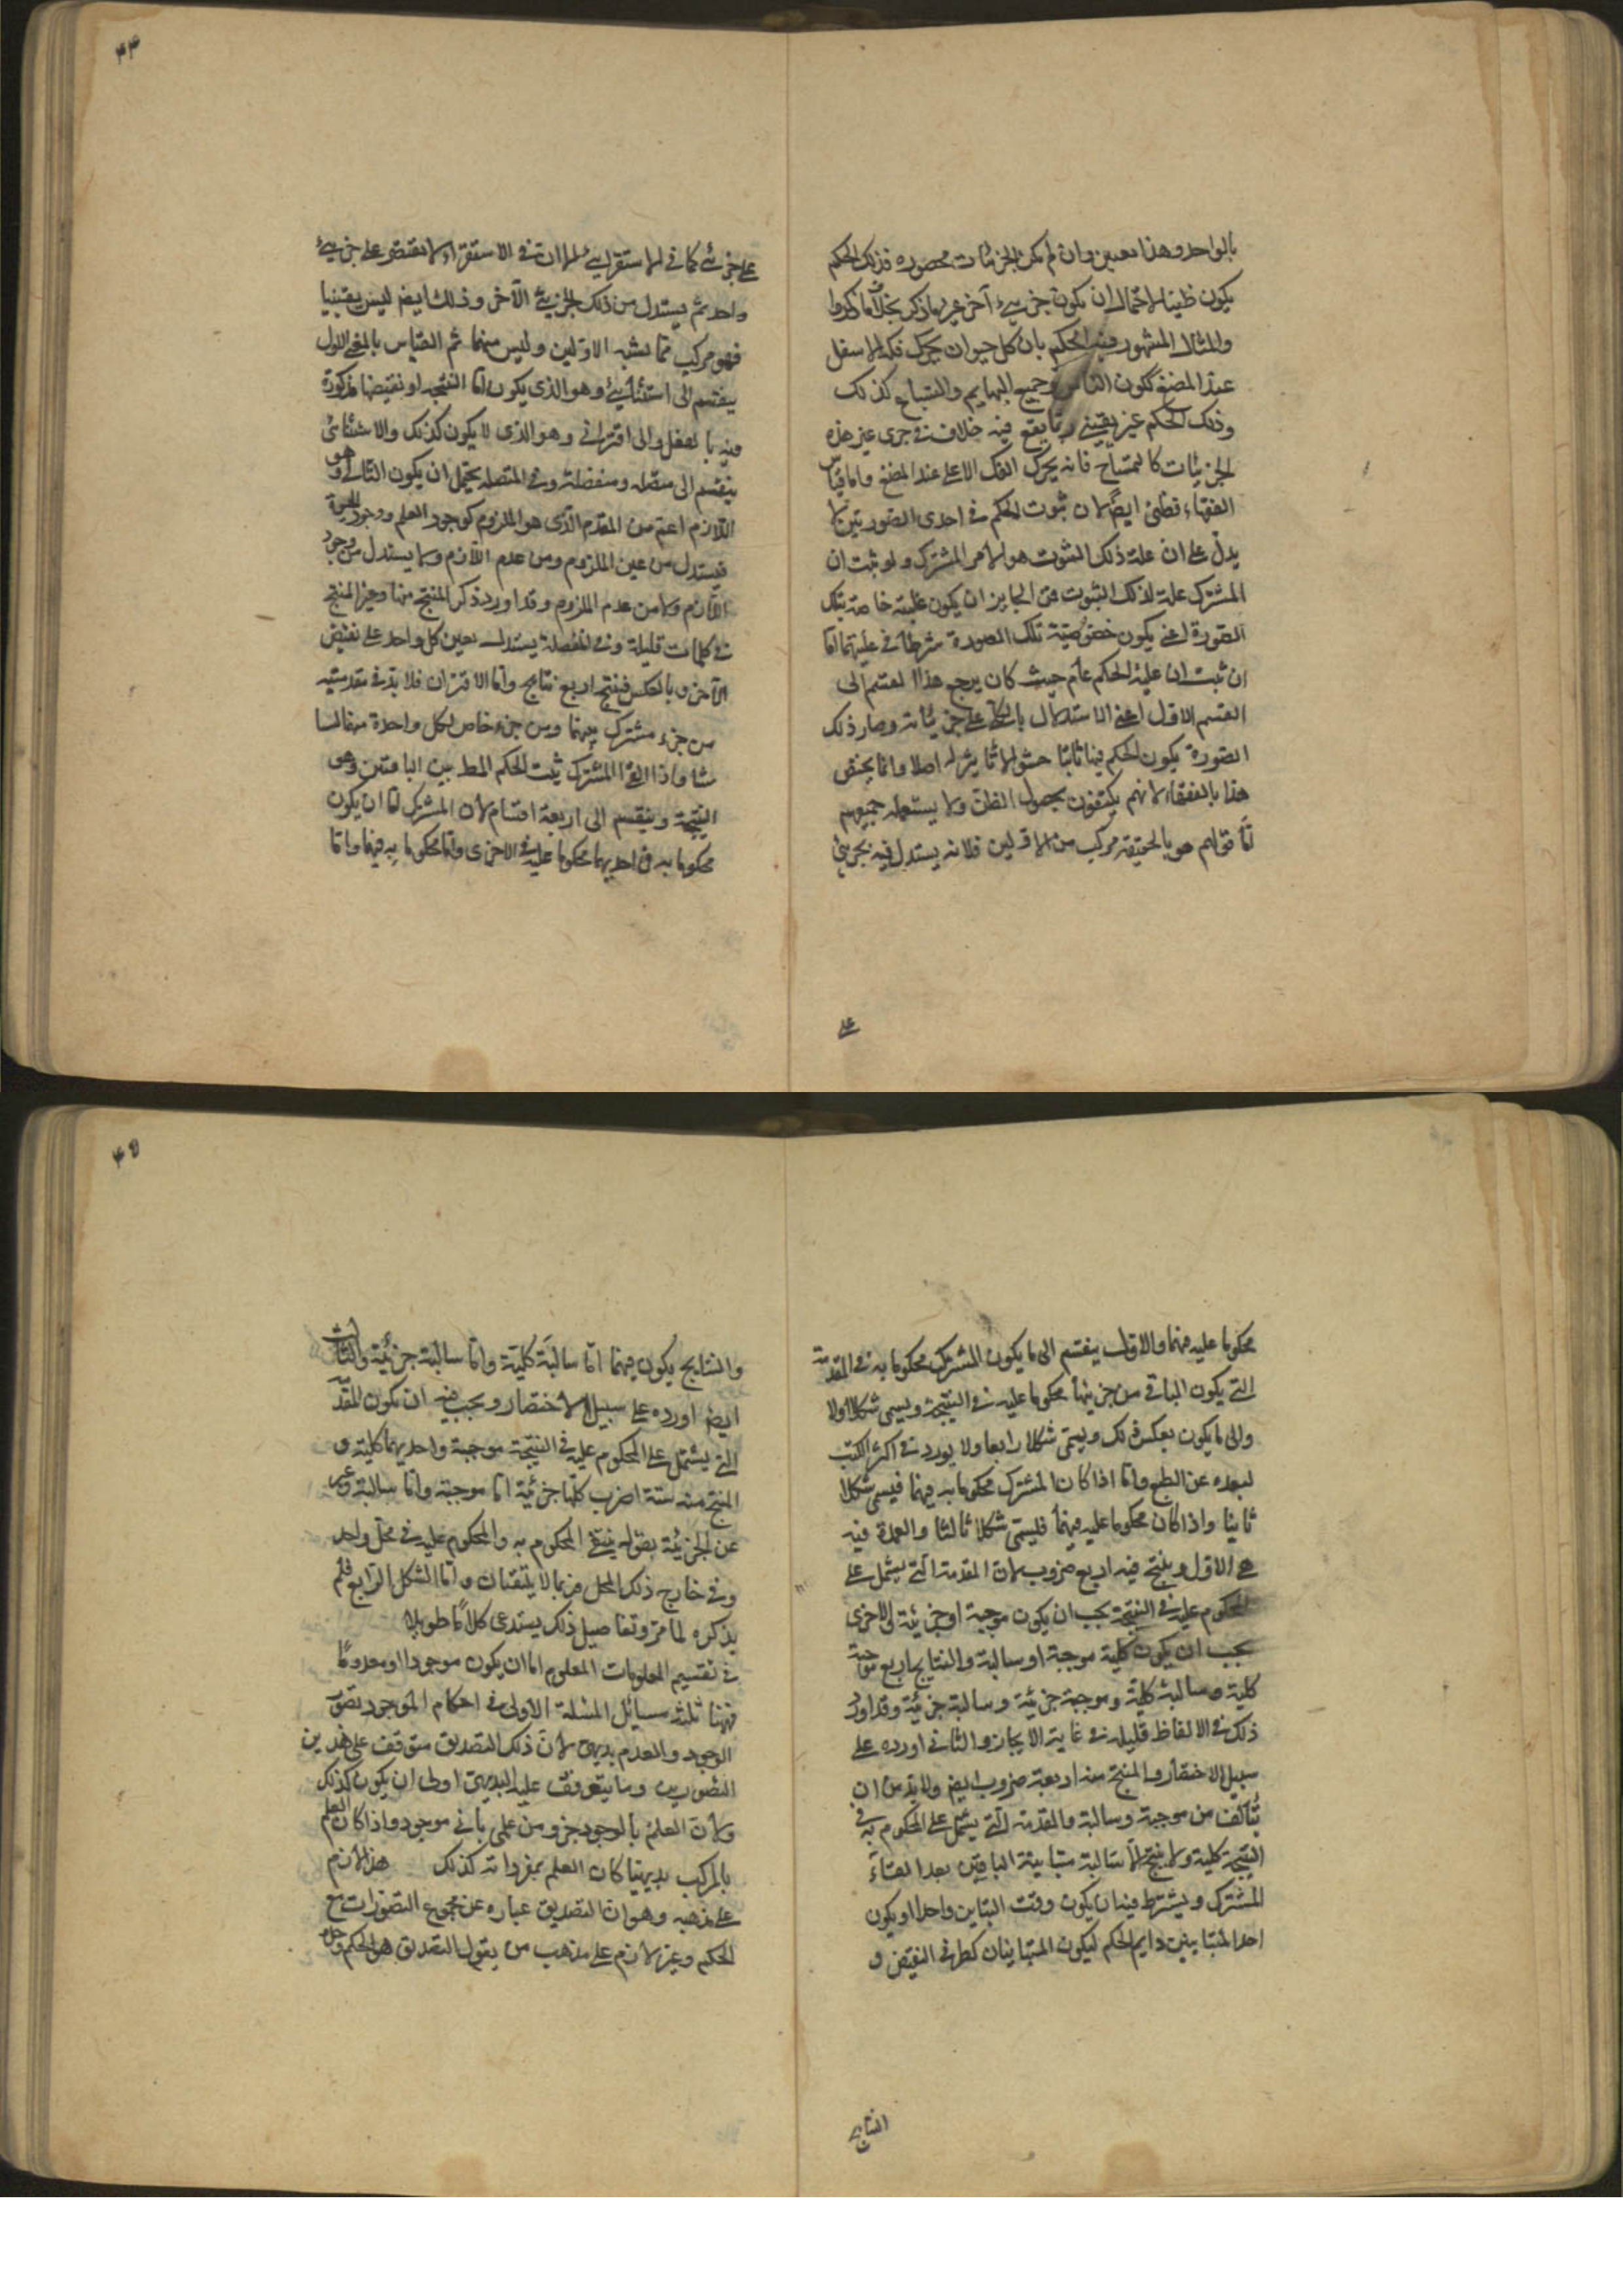 ٤٤
بالواحد وهذا بعين وان لم يكن الجزئيات محصوره فذلك الحكم
يكون ظنيا لاحتمال ان يكون جزئيء آخر غير ما ذكر بخلاف ما ذكروا
والمثال المشهور فيه الحكم بان كل حيوان يحرك فكه الاسفل
عند المضغ لكون الناس وجميع البهايم والسباع كذلك
وذلك الحكم غير يقيني ربما يقع فيه خلاف في جزئ غير هذه
الجزئيات كالتمساح فانه يحرك الفك الاعلى عند المضغ واما قياس
الفقهاء فظني ايضا لان ثبوت الحكم في احدى الصورتين لا
يدل على ان علة ذلك الثبوت هو الامر المشترك ولو ثبت ان
المشترك علة لذلك الثبوت فمن الجايز ان يكون علية خاصة بتلك
الصورة اعني يكون خصوصية تلك الصورة شرطا في عليتها اما
ان ثبت ان علية الحكم عام حيث كان يرجع هذا القسم الى
القسم الاول اعني الاستدلال بالكلي على جزئياته وصار ذلك
الصورة يكون الحكم فيها ثابتا حشوا لا تاثير له اصلا وانما يختص
هذا بالفقهاء لانهم يكتفون بحصول الظن ولا يستعمله جميعهم
اما قولهم هو بالحقيقة مركب من الاولين فلانه يستدل فيه بجزئي
على
على جزئي كما في الاستقراء الا ان في الاستقراء لا يقتصر على جزئيء
واحد ثم يستدل من ذلك الجزئي على الآخر وذلك ايضا ليس يقينيا
فهو مركب مما يشبه الاولين وليس منهما ثم القياس بالمعنى الاول
ينقسم الى استثنائيء وهو الذي يكون اما النتيجه او نقيضها مذكورة
فيه بالفعل والى اقتراني وهو الذي لا يكون كذلك والاستثنائي
ينقسم الى متصله ومنفصلة وفي المتصله يحتمل ان يكون التالي وهو
اللازم اعم من المقدم الذي هو الملزوم كوجود العلم ووجود الحيوة
فيستدل من عين الملزوم ومن عدم اللازم ولا يستدل من وجود
اللازم ولا من عدم الملزوم وقد اورد ذكر المنتج منها وغير المنتج
في كلمات قليلة وفي المنفصلة يستدل بعين كل واحد على نقيض
الآخر وبالعكس فينتج اربع نتايج واما الاقتران فلا بد في مقدمتيه
من جزء مشترك بينهما ومن جزء خاص لكل واحدة منهما
فاذا الغي المشترك ثبت الحكم المط بين الباقيين وهي
النتيجة وينقسم الى اربعة اقسام لان المشترك اما ان يكون
محكوما به في احديهما محكوما عليه في الاخرى واما محكوما به فيهما واما
٤٥
محكوما عليه فيهما والاول ينقسم الى ما يكون المشترك محكوما به في المقدمة
التي يكون الباقي من جزئيها محكوما عليه في النتيجة ويسمى شكلا اولا
والى ما يكون بعكس ذلك ويسمى شكلا رابعا ولا يورد في اكثر الكتب
لبعده عن الطبع واما اذا كان المشترك محكوما به فيهما فيسمى شكلا
ثانيا واذا كان محكوما عليه فيهما فليسمى شكلا ثالثا والعمدة فيه
هي الاول وينتج فيه اربع ضروب لان المقدمة التي يشتمل على
المحكوم عليه في النتيجة يجب ان يكون موجبة او جزئية والاخرى
يجب ان يكون كلية موجبة او سالبة والنتايج اربع موجبة
كلية وسالبة كلية وموجبة جزئية وسالبة جزئية وقد اورد
ذلك في الالفاظ قليله في غاية الايجاز والثاني اورده على
سبيل الاختصار والمنتج منه اربعة ضروب ايضا ولا بد من ان
يتألف من موجبة وسالبة والمقدمة التي يشتمل على المحكوم به في
النتيجة كلية ولا ينتج الا سالبة متباينة الباقيين بعد القاء
المشترك ويشترط فيه ان يكون وقت التباين واحدا او يكون
احد المتباينين دايم الحكم ليكون المتباينان كطرفي النقيض و
النتايج
والنتايج يكون فيهما اما سالبة كلية واما سالبة جزئية والثالث
ايضا اورده على سبيل الاختصار ويجب فيه ان يكون المقدمة
التي يشتمل على المحكوم عليه في النتيجة موجبة واحديهما كلية و
المنتج منه ستة اضرب كلها جزئية اما موجبة واما سالبة وعبر
عن الجزئية بقوله يلتقي المحكوم به والمحكوم عليه في محل واحد
وفي خارج ذلك المحل فربما لا يلتقيان واما الشكل الرابع فلم
يذكره لما مر وتفاصيل ذلك يستدعى كلاما طويلا
في تقسيم المعلومات المعلوم اما ان يكون موجودا او معدوما
فههنا ثلثه مسائل المسئلة الاولى في احكام الموجود تصور
الوجود والعدم بديهي لان ذلك التصديق متوقف على هذين
التصورين وما يتوقف عليه البديهي اولى ان يكون كذلك
ولان العلم بالوجود جزو من علمي باني موجود واذا كان العلم
بالمركب بديهيا كان العلم بمفرداته كذلك هذا لازم
على مذهبه وهو ان التصديق عباره عن مجموع التصورات مع
الحكم وغير لازم على مذهب من يقول التصديق هو الحكم وحده